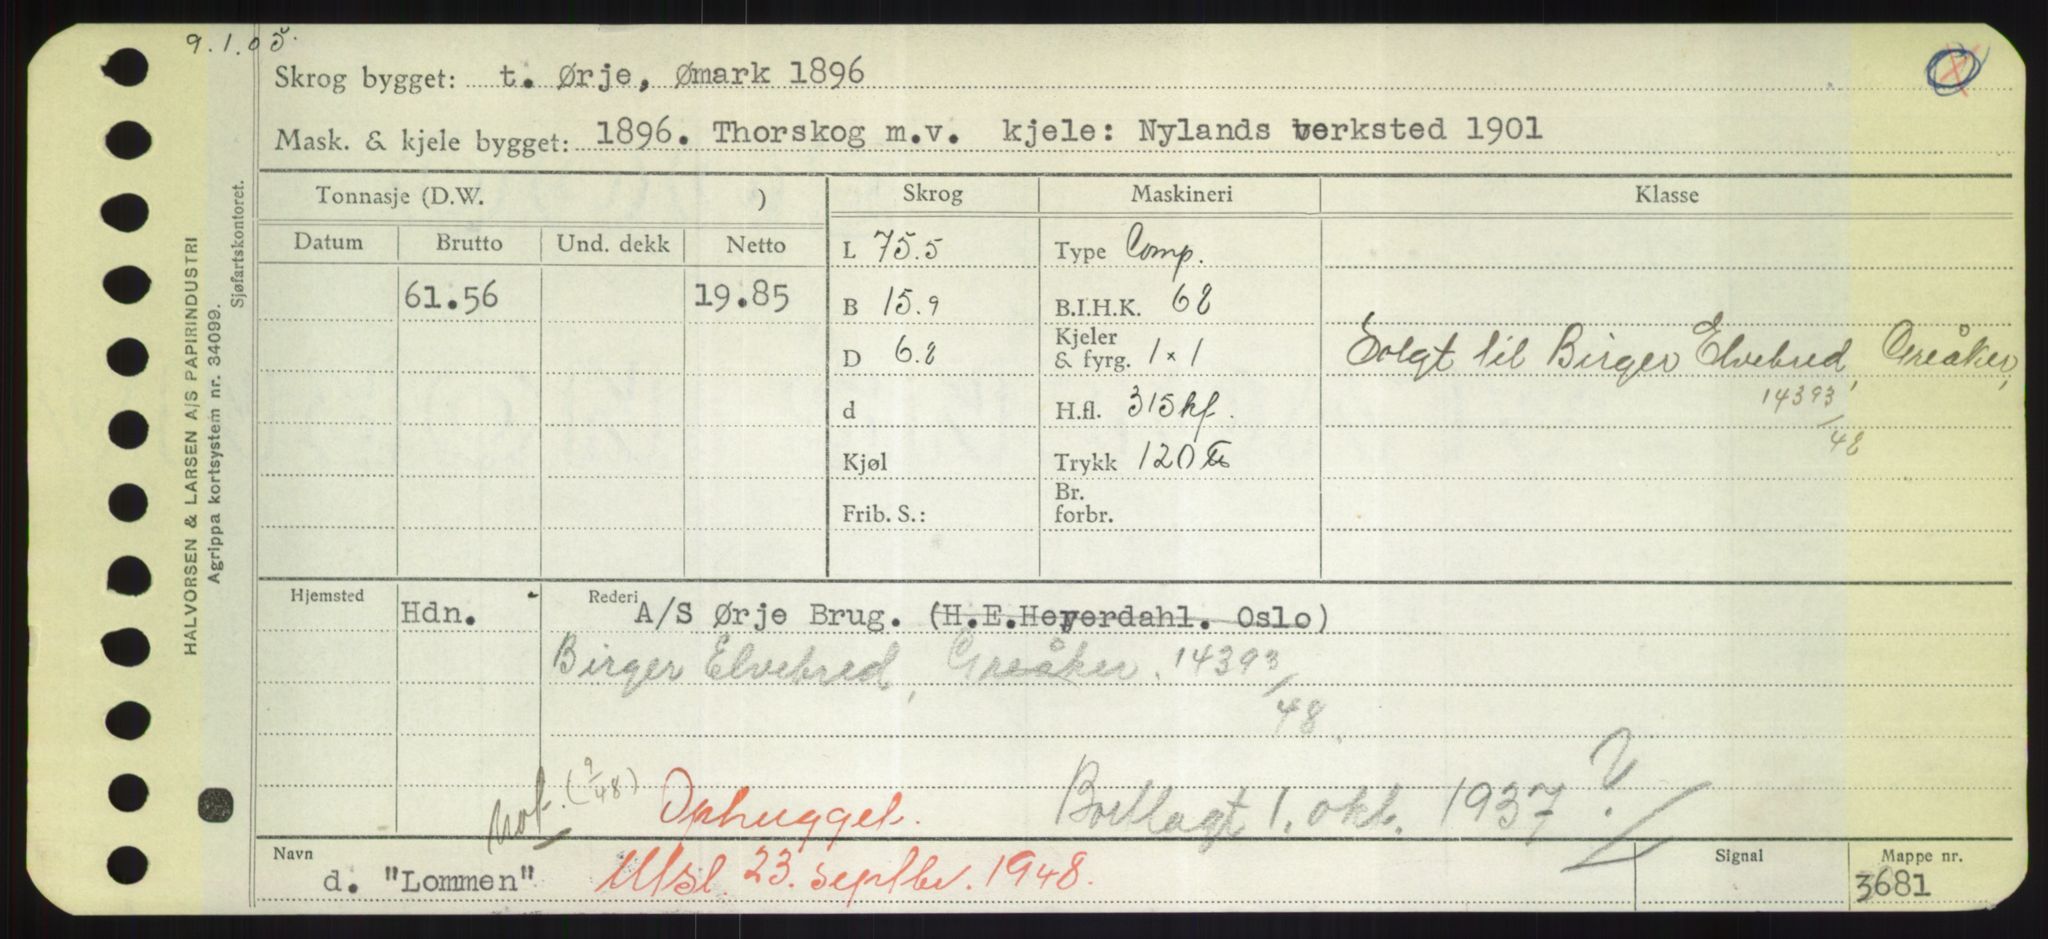 9.1.05.
Skrog bygget: t. Ørje, Ømark 1896
Mask. & kjele bygget: 1896. Thorskog m.v. kjele: Nylands verksted 1901
HALVORSEN & LARSEN A/S PAPIRINDUSTRI
Agrippa kortsystem nr. 34099.
Sjøfartskontoret.
Tonnasje (D.W. ) Skrog Maskineri Klasse
Datum Brutto Und. dekk Netto L 75.5 Type Comp.
61.56 19.85 B 15.9 B.I.H.K. 68
D 6.8 Kjeler & fyrg. 1 x 1 Solgt til Birger Elvebred, Greåker,
14393/48
d H.fl. 315 kf.
Kjøl Trykk 120
Frib. S.: Br. forbr.
Hjemsted Hdn. Rederi A/S Ørje Brug. (H.E.Heyerdahl. Oslo)
Birger Elvebred, Greåker. 14393/48.
not. (9/48) Ophugget. Bortlagt 1. okt. 1937 ?
Navn d. "Lommen" Utsl. 23. septbr. 1948. Signal Mappe nr. 3681